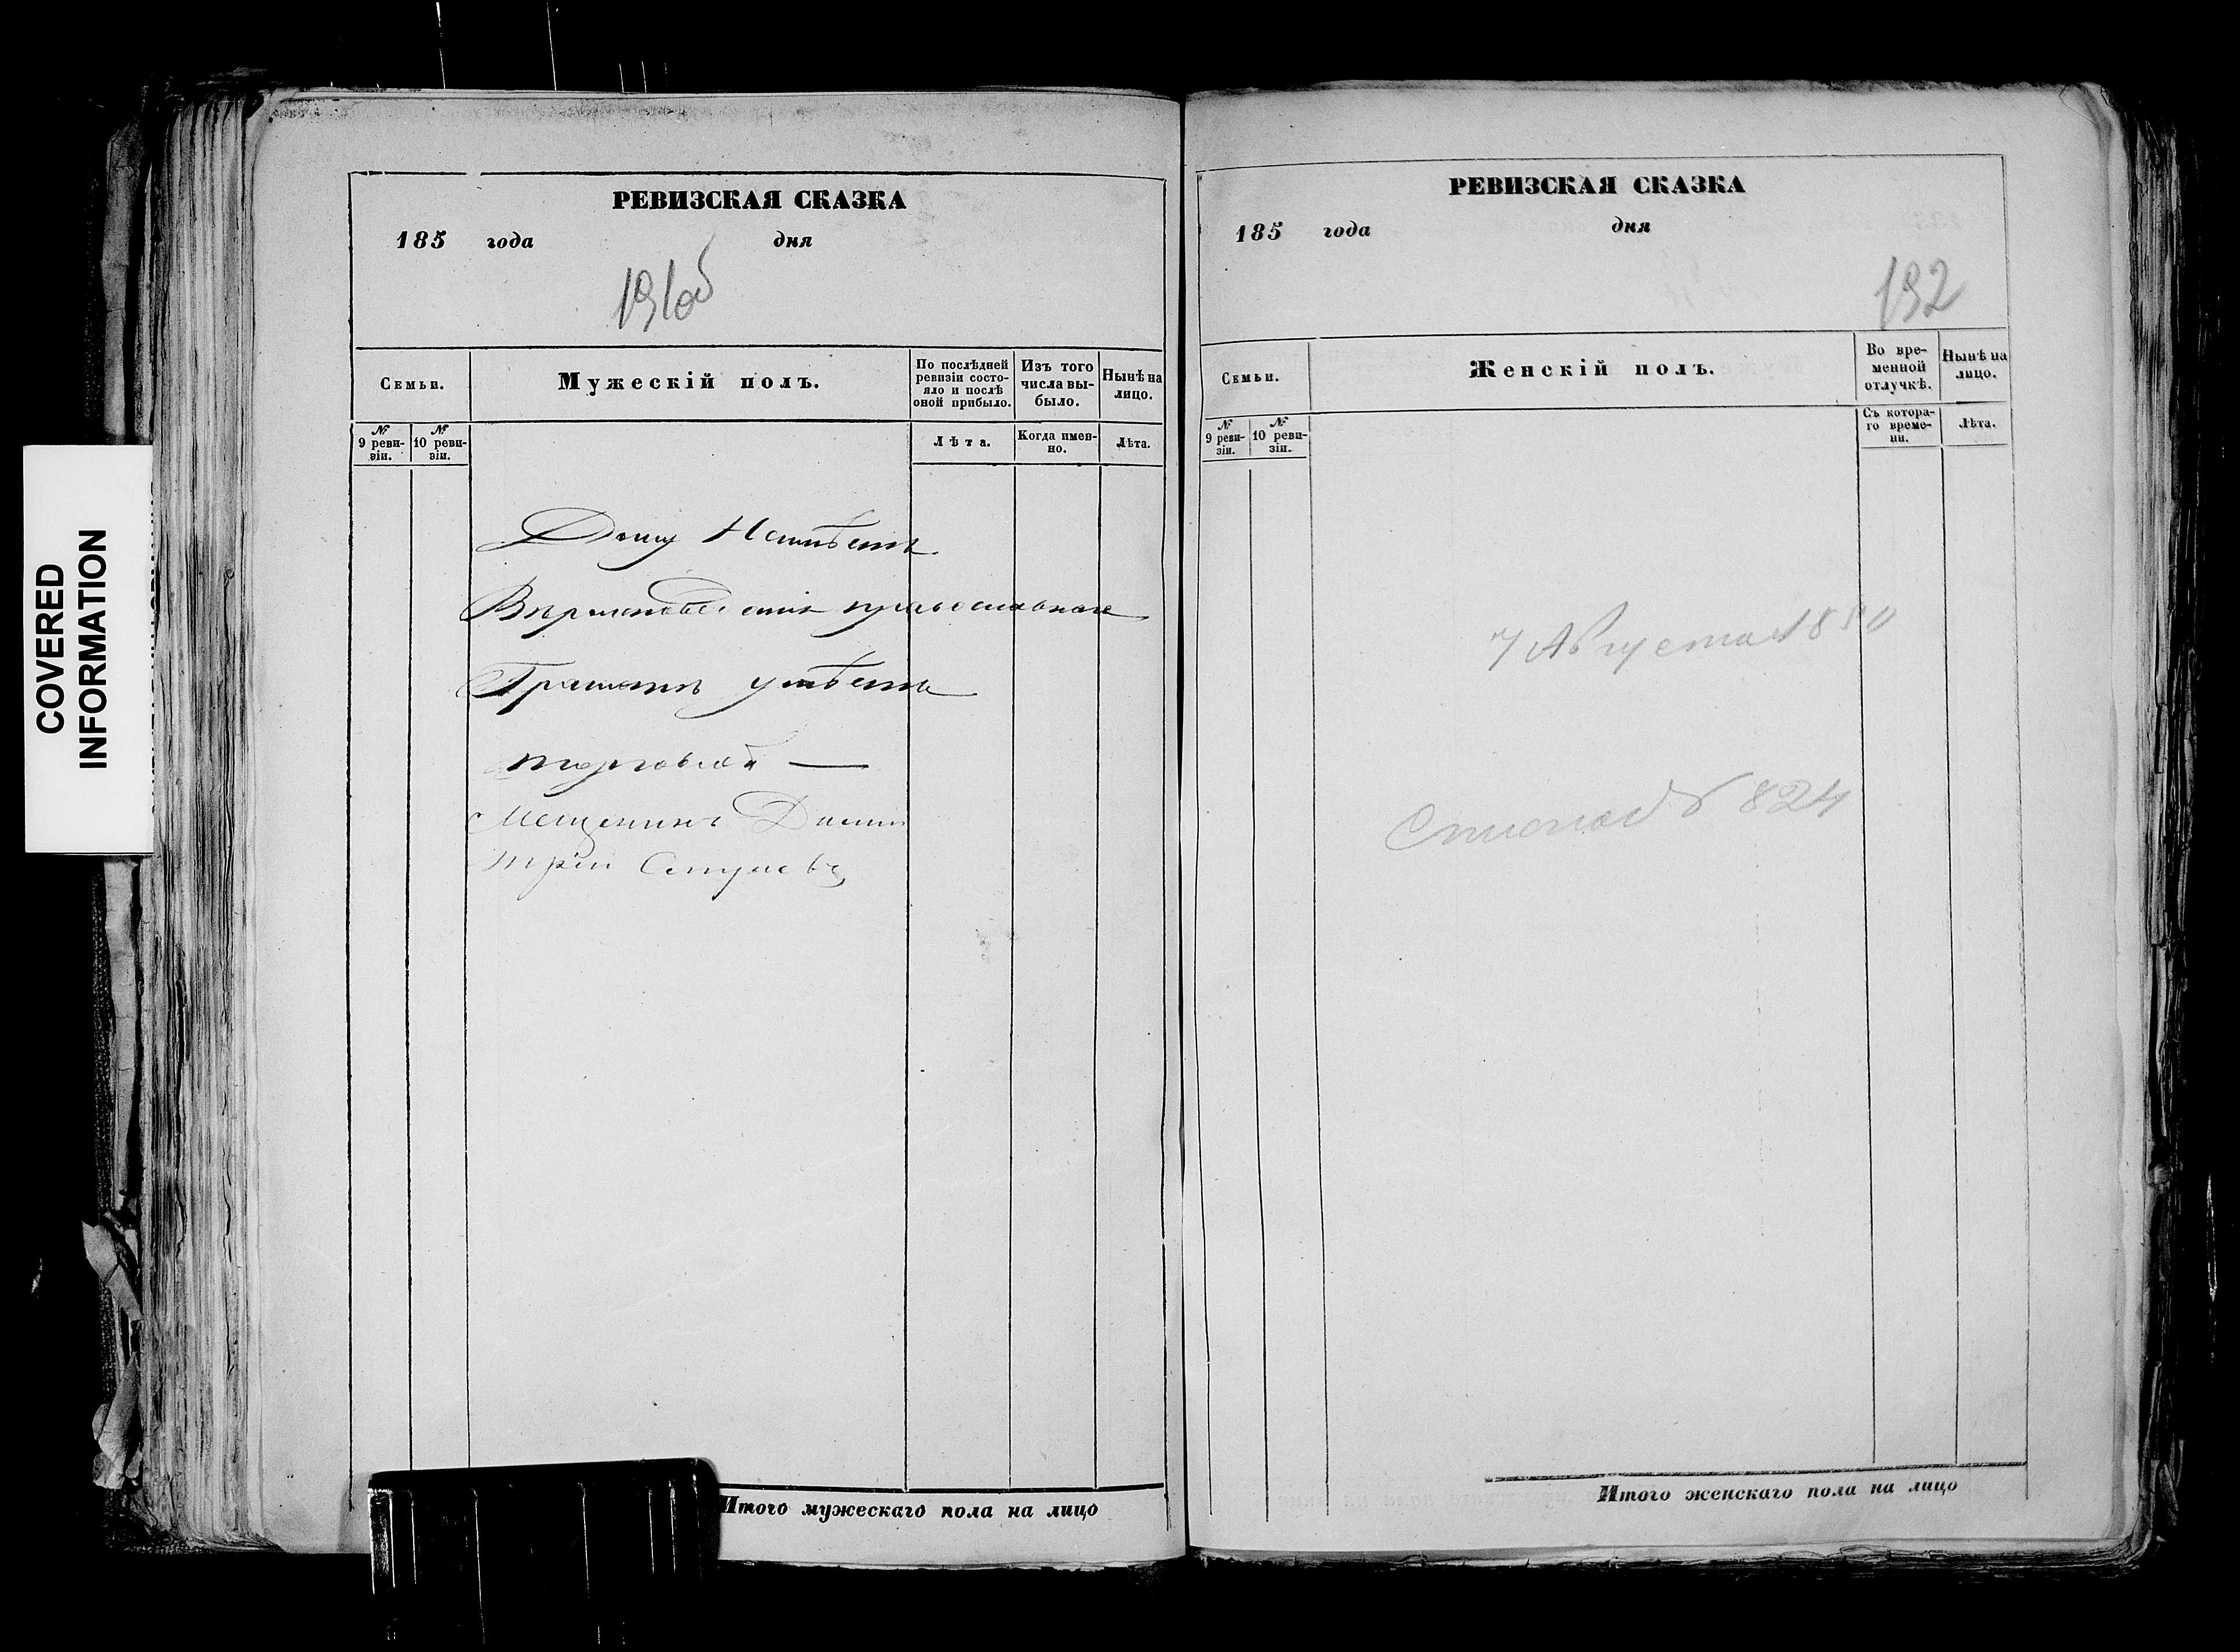 COVERED
INFORMATION
РЕВИЗСКАЯ СКАЗКА
185 года дня
191об
Семьи.
Мужескій полъ.
По послѣдней ревизіи состояло и послѣ оной прибыло.
Изъ того числа выбыло.
Нынѣ на лицо.
№ 9 ревизіи.
№ 10 ревизіи.
Лѣта.
Когда именно.
Лѣта.
Дому Неимѣетъ
Вѣроисповеданія православнаго
Грамотѣ умѣетъ
торговлей —
Мещанинъ Дими
трій
Итого мужескаго пола на лицо
РЕВИЗСКАЯ СКАЗКА
185 года дня
192
Семьи.
Женскій полъ.
Во временной отлучкѣ.
Нынѣ на лицо.
№ 9 ревизіи.
№ 10 ревизіи.
Съ котораго времени.
Лѣта.
7 Августа 1850
№ 824
Итого женскаго пола на лицо